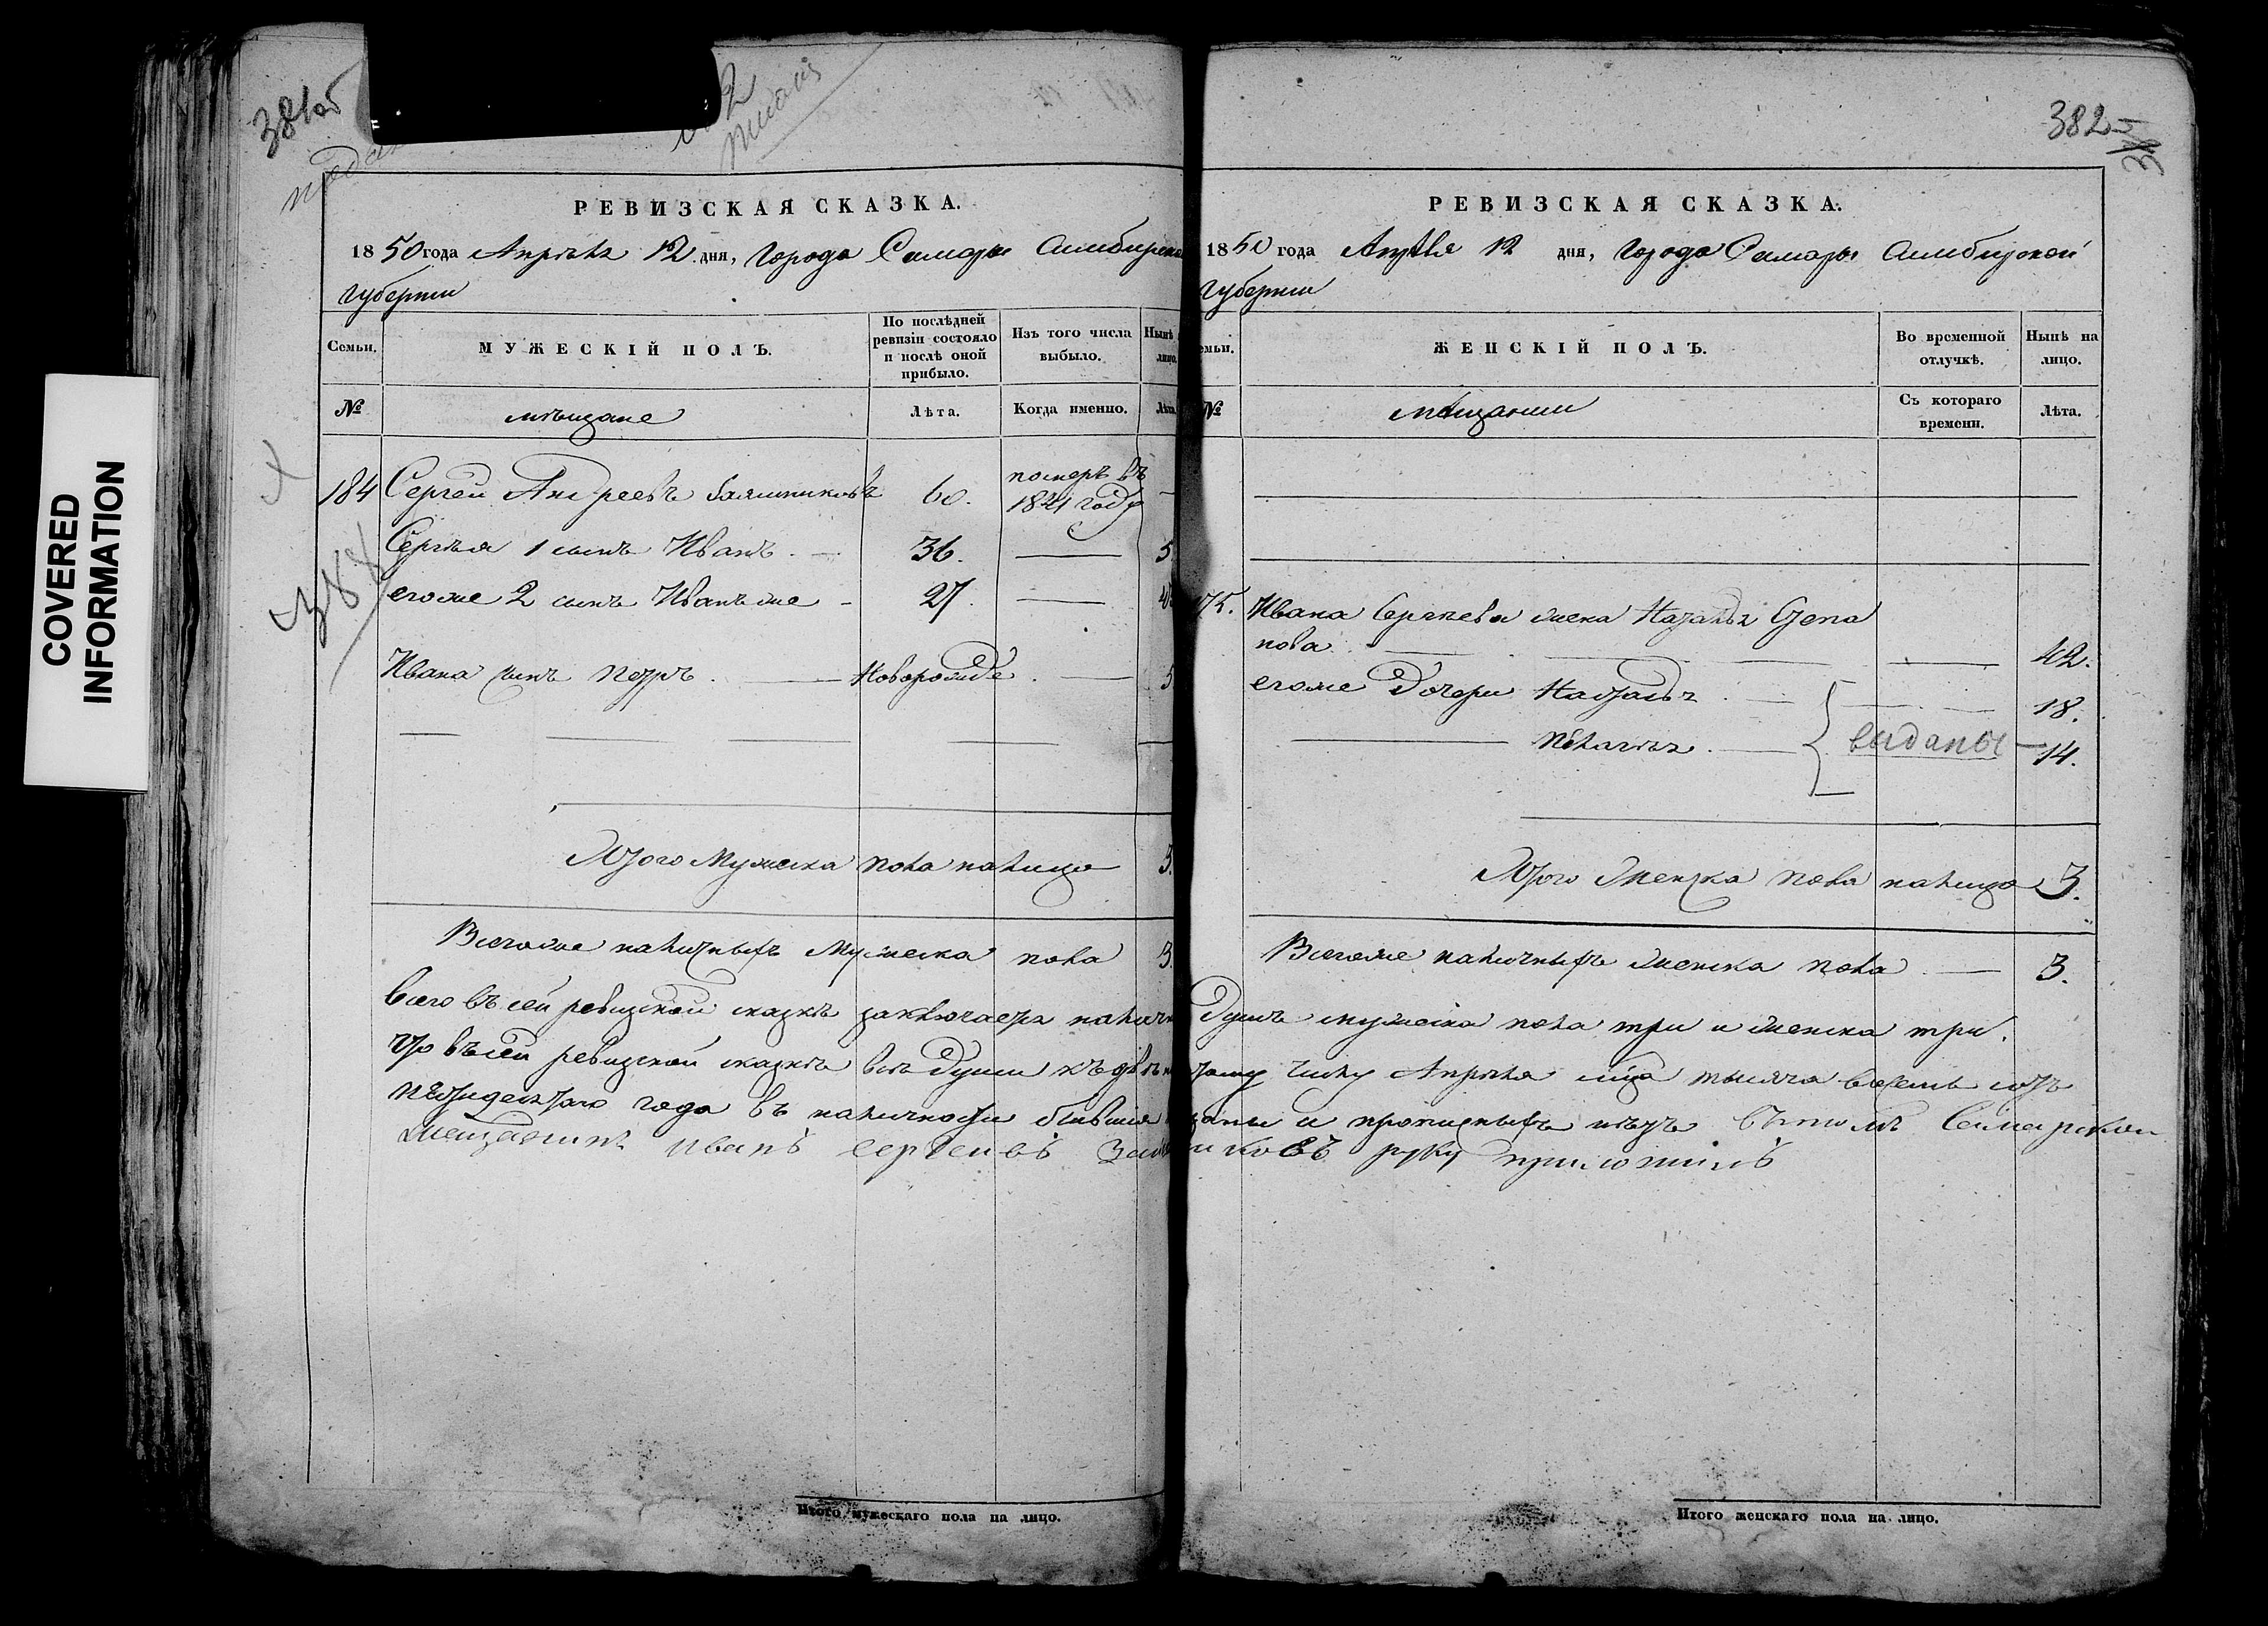 COVERED
INFORMATION
381об
382
388
РЕВИЗСКАЯ СКАЗКА.
1850 года Апрѣля 12 дня, Города Самары Симбирско
Губернии
Семьи.
МУЖЕСКІЙ ПОЛЪ.
По послѣдней ревизіи состояло и послѣ оной прибыло.
Изъ того числа выбыло.
Нынѣ
лицо.
№
мѣщане
Лѣта.
Когда именно.
Лѣта
184 Сергей Андреевъ 60. померъ въ
1841 году
Сергѣя 1 сынъ Иванъ. 36. 5
егоже 2 сынъ Иванъ же 27. 4
Ивана сынъ Петръ. Новорожде. 5
Итого Мужеска пола налицо 3.
Всегоже наличныхъ Мужеска пола 3.
всего въ сей ревизской сказкѣ заключается налич
что въ сей ревизской сказкѣ всѣ души къ двѣ
пятидесятаго года въ наличности бывшия
мещанинъ иванъ сергеивъ
Итого мужескаго пола на лицо.
РЕВИЗСКАЯ СКАЗКА.
1850 года Апрѣля 12 дня, Города Самары Симбирской
Губернии
емьи.
ЖЕНСКІЙ ПОЛЪ.
Во временной отлучкѣ.
Нынѣ на лицо.
№
мѣщанки
Съ котораго времени.
Лѣта.
Ивана Сергѣева жена Наталья Степа
нова 42.
егоже Дочери Наталья 18.
Пелагѣя. выданы 14.
Итого Женска пола налицо 3.
Всегоже наличныхъ женска пола 3.
Душъ мужеска пола три и женска три.
тому числу Апрѣля мца тысяча восемь сотъ
заны и прописныхъ нѣтъ въ томъ Самарской
иковъ руку приложилъ
Итого женскаго пола на лицо.